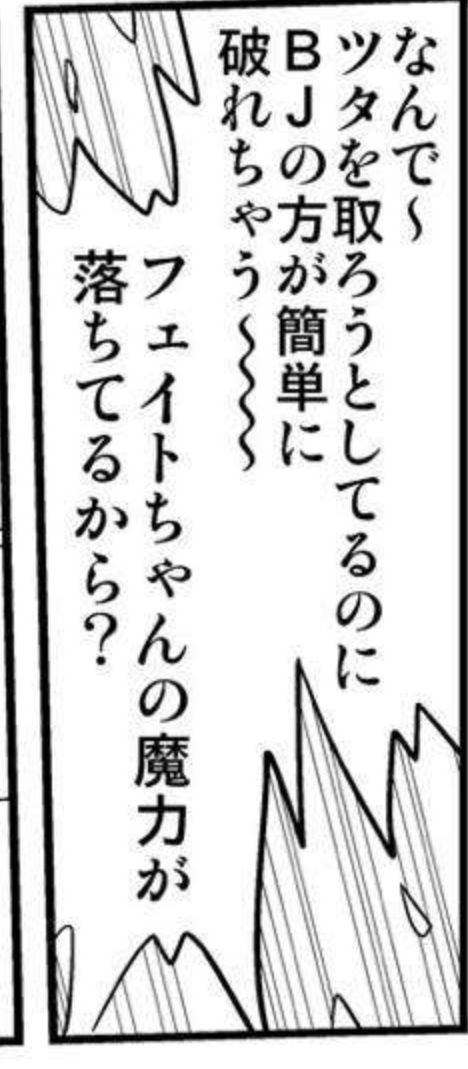 なんで～
ツタを取ろうとしてるのに
ＢＪの方が簡単に
破れちゃう～～～～
フェイトちゃんの魔力が
落ちてるから？